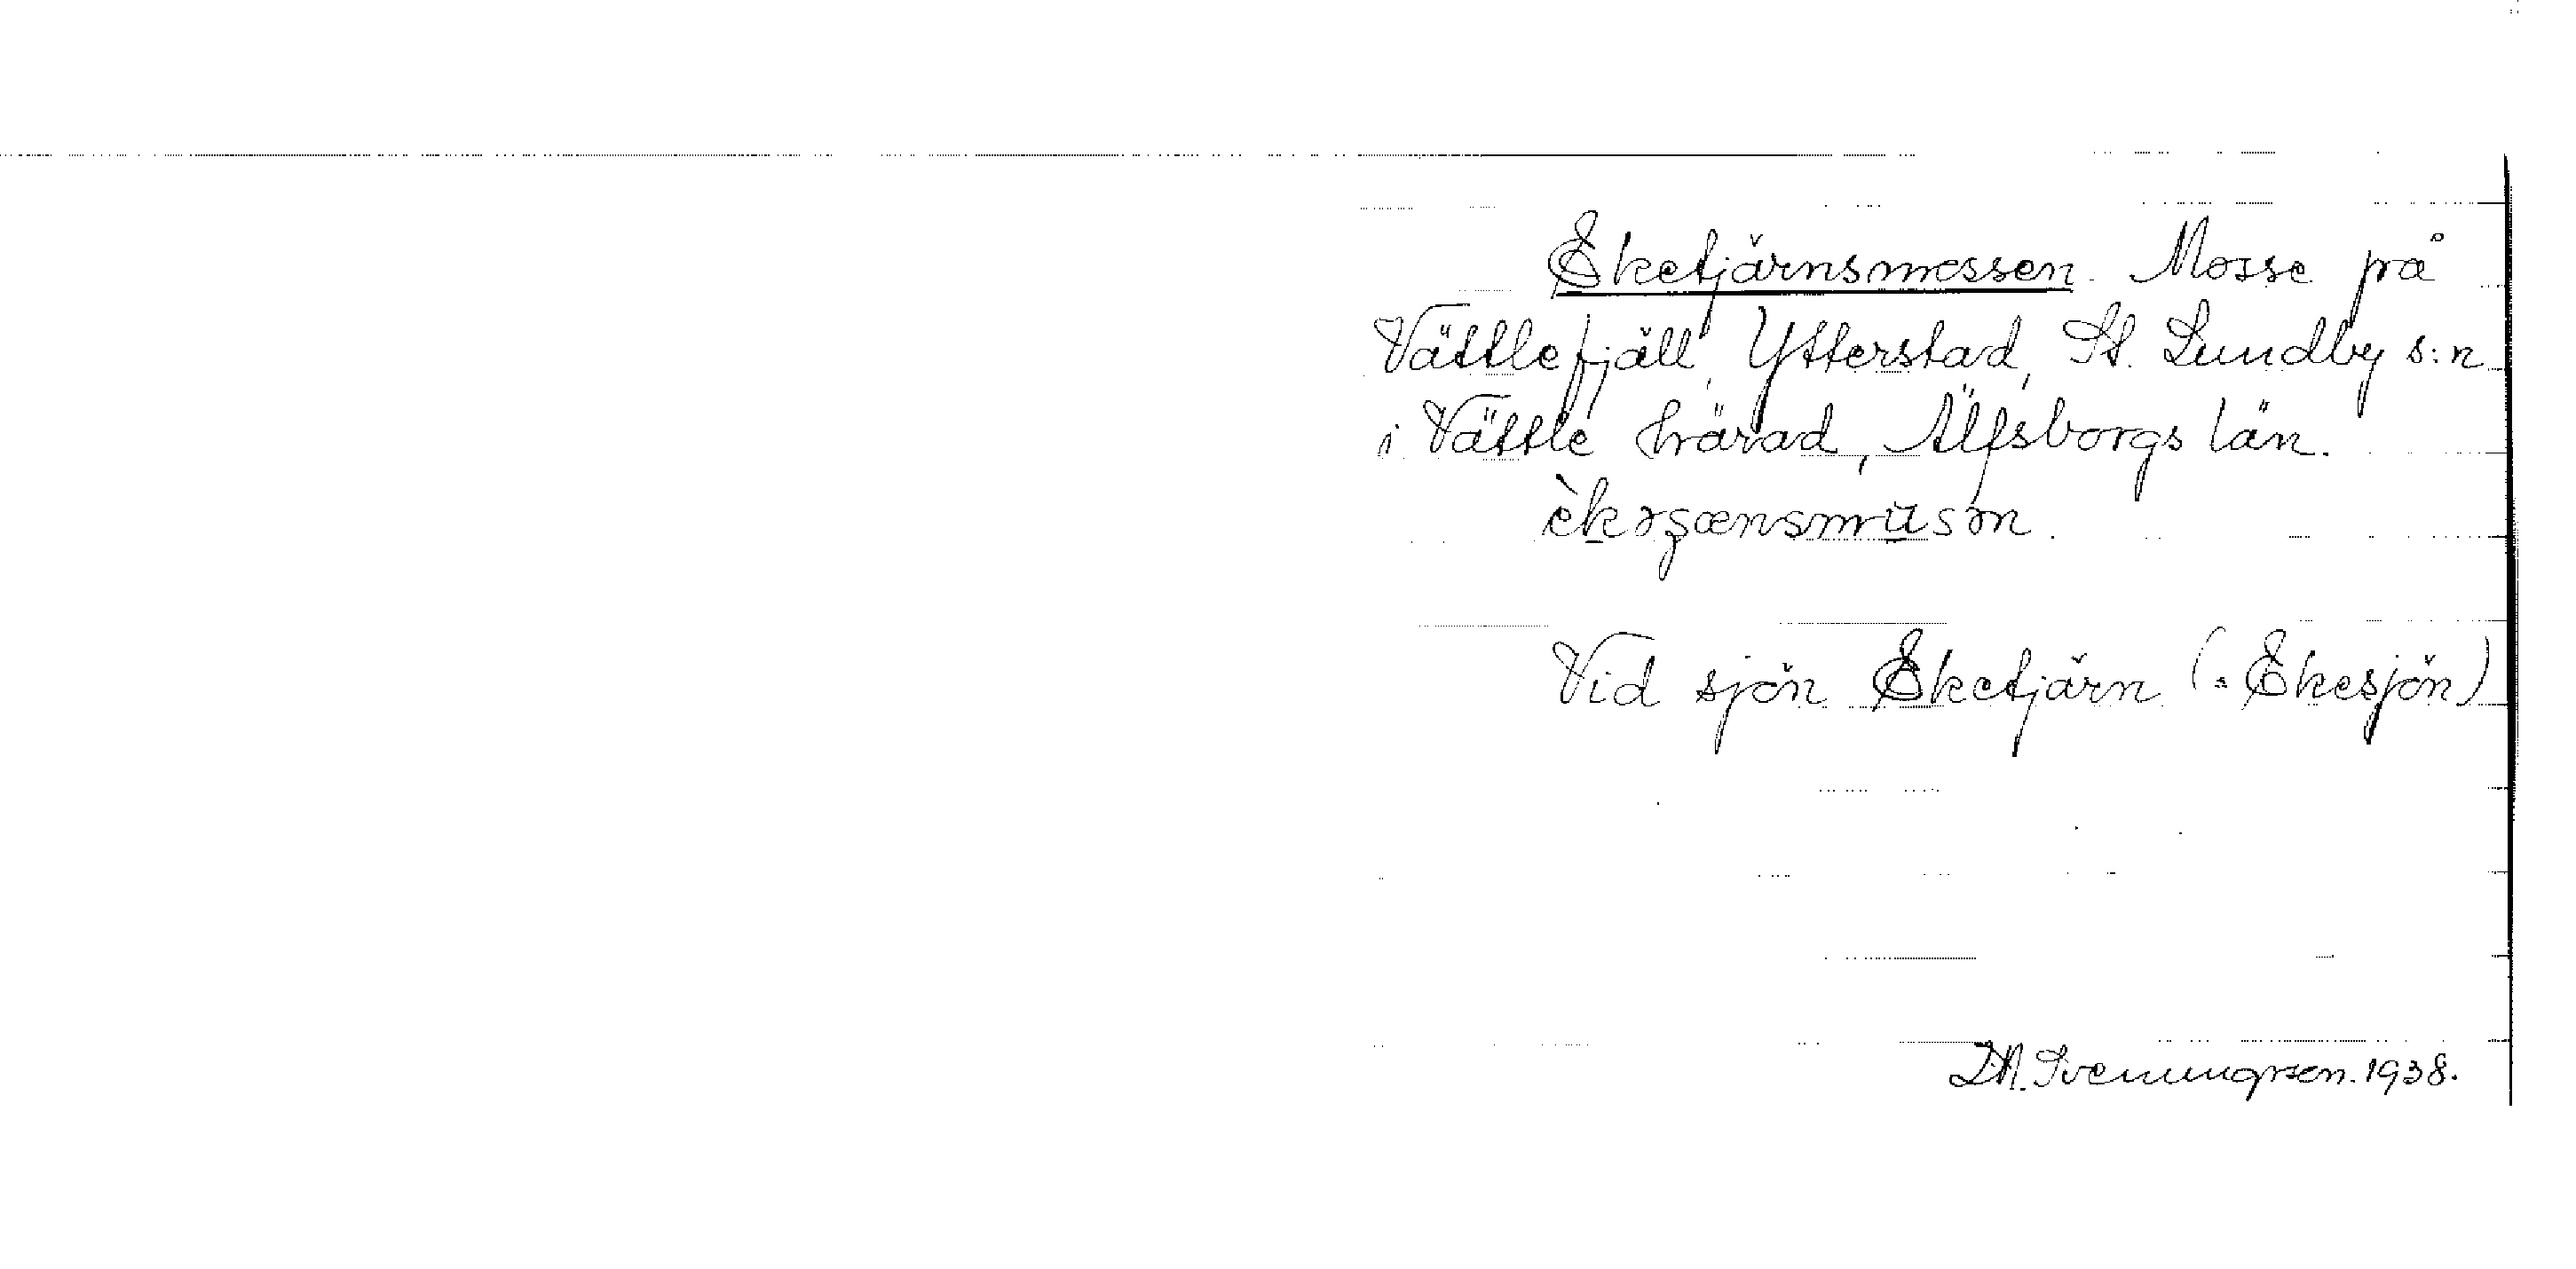 Eketjärnsmossen. Mosse på
Vättlefjäll, Ytterstad, St. Lundby s:n
i Vättle härad, Älfsborgs län.
Vid sjön Eketjärn (= Ekesjön)
1938.